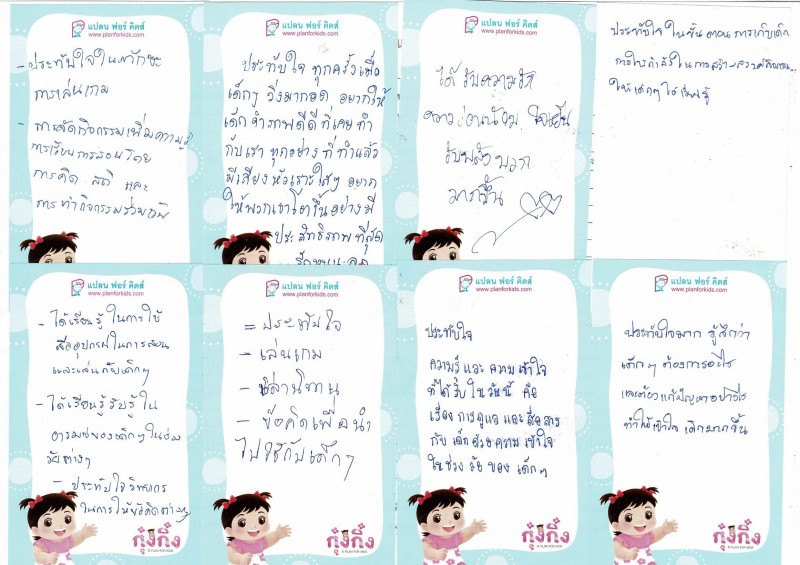 แปลน ฟอร์ คิดส์
www.planforkids.com
- ประทับใจในทักษะ
การเล่นเกม
- การจัดกิจกรรมเพิ่มความรู้
การเรียนการสอนโดย
การคิด สติ และ
การทำกิจกรรมร่วมกัน
แปลน ฟอร์ คิดส์
www.planforkids.com
ประทับใจ ทุกครั้งเมื่อ
เด็กๆ วิ่งมากอด อยากให้
เด็กจำภาพดีดีที่เคยทำ
กับเรา ทุกอย่าง ที่ทำแล้ว
มีเสียงหัวเราะใสๆ อยาก
ให้พวกเขาโตขึ้นอย่างมี
ประสิทธิภาพที่สุด
แปลน ฟอร์ คิดส์
www.planforkids.com
ได้ รับความรัก
ความอ่อนน้อม ใจเย็น
รับพลังบวก
มากขึ้น
ประทับใจ ในขั้นตอน การเก็บเด็ก
ให้เด็กๆ ได้เรียนรู้
แปลน ฟอร์ คิดส์
www.planforkids.com
- ได้เรียนรู้ ในการใช้
สื่ออุปกรณ์ในการสอน
และเล่นกับเด็กๆ
- ได้เรียนรู้รับรู้ใน
อารมณ์ของเด็กๆในช่วง
วัยต่างๆ
- ประทับใจวิทยากร
ในการให้ข้อคิดต่างๆ
กุ๋งกิ๋ง
แปลน ฟอร์ คิดส์
www.planforkids.com
= ประทับใจ
- เล่นเกม
- เล่านิทาน
- ข้อคิดเพื่อนำ
ไปใช้กับเด็กๆ
กุ๋งกิ๋ง
แปลน ฟอร์ คิดส์
www.planforkids.com
ประทับใจ
ความรู้ และ ความเข้าใจ
ที่ได้รับ ในวันนี้ คือ
เรื่อง การดูแล และ สื่อสาร
กับ เด็กด้วยความ เข้าใจ
ในช่วง วัย ของ เด็กๆ
กุ๋งกิ๋ง
แปลน ฟอร์ คิดส์
www.planforkids.com
ประทับใจมาก รู้สึกว่า
เด็กๆ ต้องการอะไร
และต้องแก้ปัญหาอย่างไร
ทำให้เข้าใจ เด็กมากขึ้น
กุ๋งกิ๋ง